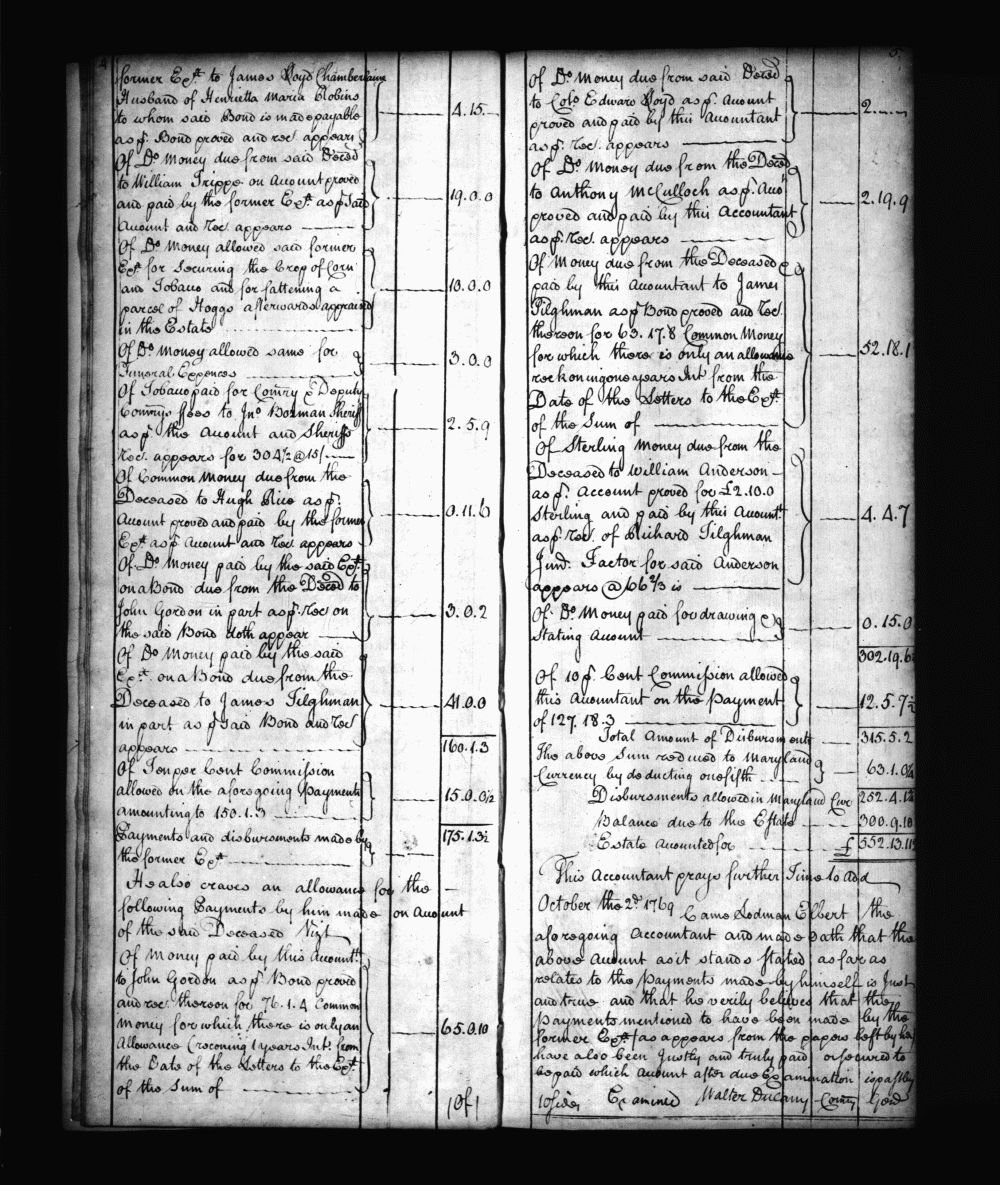 4
former Exx. to James Lloyd Chamberlaine
Husband of Henrietta Maria Robins
to whom said Bond is made payable 4.15.
as p. Bond proved and rec. appears
Of Do. Money due from said Deced
to William Trippe on Acount proved
and paid by the former Exx. as p. said 19.0.0
Acount and Rec. appears
Of Do. Money allowed said former
Exx. for Securing the Crop of Corn
and Tobaco and for fattening a 10.0.0
parcel of Hoggs afterwards appraised
in the Estate
Of Do. Money allowed same for
Funeral Expences 3.0.0
Of Tobaco paid for Comry & Deputy
Comrys ffees to Jno. Bozman Sheriff
as p. the Acount and Sheriffs 2.5.9
Rec. appears for 304½ @ 15/.
Of Common Money due from the
Deceased to Hugh Rice as p.
Acount proved and paid by the former 0.11.6
Exx. as p. Acount and Rec. appears
Of Do. Money paid by the said Exx.
on a Bond due from the Deced to
John Gordon in part as p. Rec. on 3.0.2
the said Bond doth appear
Of Do. Money paid by the said
Exx. on a Bond due from the
Deceased to James Tilghman 41.0.0
in part as p. said Bond and Rec.
appears 160.1.3
Of Ten per Cent Commission
allowed on the aforegoing payments 15.0.0½
amounting to 150.1.3
Payments and disbursments made by 175.1.3½
the former Exx.
He also craves an allowance for the
following Payments by him made on Acount
of the said Deceased Vizt
Of Money paid by this Acountt.
to John Gordon as p. Bond proved
and rec. thereon for 76.1.4 Common
Money for which there is only an 65.0.10
Allowance (recconing 1 years Int. from
the Date of the Letters to the Exx.
of the Sum of
5
Of Do. Money due from said Deced
to Colo. Edward Lloyd as p. Acount 2.
proved and paid by this Acountant
as p. Rec. appears
Of Do. Money due from the Deced
to Anthony McCulloch as p. Aco. 2.19.9
proved and paid by this Accountant
as p. Rec. appears
Of Money due from the Deceased &
paid by this Acountant to James
Tilghman as p. Bond proved and Rec.
thereon for 63.17.8 Common Money
for which there is only an allowance 52.18.1
reckoning one years Int. from the
Date of the Letters to the Exx.
of the Sum of
Of Sterling Money due from the
Deceased to William Anderson
as p. Account proved for £2.10.0
Sterling and paid by this Acountt. 4.4.7
as p. Rec. of Richard Tilghman
Junr. Factor for said Anderson
appears @ 66⅔ is
Of Do. Money paid for drawing &
Stating Acount 0.15.0
302.19.6½
Of 10 p. Cent Commission allowed
this Acountant on the Payment 12.5.7½
of 127.18.3
Total Amount of Disbursments 315.5.2
The above Sum reduced to Maryland
Currency by deducting one fifth 63.1.0½
Disbursments allowed in Maryland Cur 252.4.1½
Balance due to the Estate 300.9.10
Estate Acounted for £ 552.13.11½
This Accountant prays further Time to add
October the 2d. 1769 Came Lodman Elbert the
aforegoing Accountant and made Oath that the
above Acount as it stands Stated as far as
relates to the Payments made by himself is Just
and true and that he verily believes that the
payments mentioned to have been made by the
former Exx. (as appears from the papers left by her
have also been Justly and truly paid or secured to
be paid which Acount after due Examination is past by
10 sides Examined Walter Dulany Comry Genl